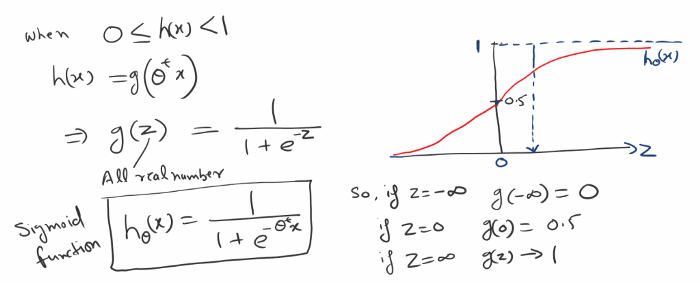 when 0 ≤ h(x) < 1
h(x) = g(θᵗx)
⇒ g(z) = 1 / (1 + e^-z)
All real number
Sigmoid function
hθ(x) = 1 / (1 + e^-θᵗx)
1
hθ(x)
0.5
0
z
So, if z=-∞ g(-∞) = 0
if z=0 g(0) = 0.5
if z=∞ g(z) → 1